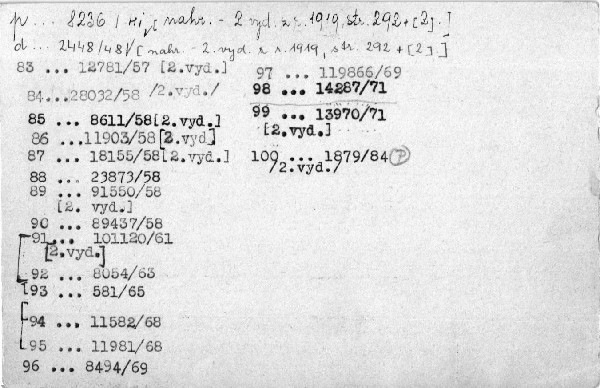 p... 8236/ [nahr. - 2. vyd. z r. 1919, str. 292 + [2].]
d... 2448/48/[nahr. - 2. vyd. z r. 1919, str. 292 + [2].]
83 ... 12781/57 [2.vyd.]
84...28032/58 /2.vyd./
85 ... 8611/58[2.vyd.]
86 ...11903/58[2.vyd]
87 ... 18155/58[2.vyd.]
88 ... 23873/58
89 ... 91550/58
[2. vyd.]
90 ... 89437/58
91... 101120/61
[2.vyd.]
92 ... 8054/63
93 ... 581/65
94 ... 11582/68
95 ... 11981/68
96 ... 8494/69
97 ... 119866/69
98 ... 14287/71
99 ... 13970/71
[2.vyd.]
100 ... 1879/84 P
/2.vyd./